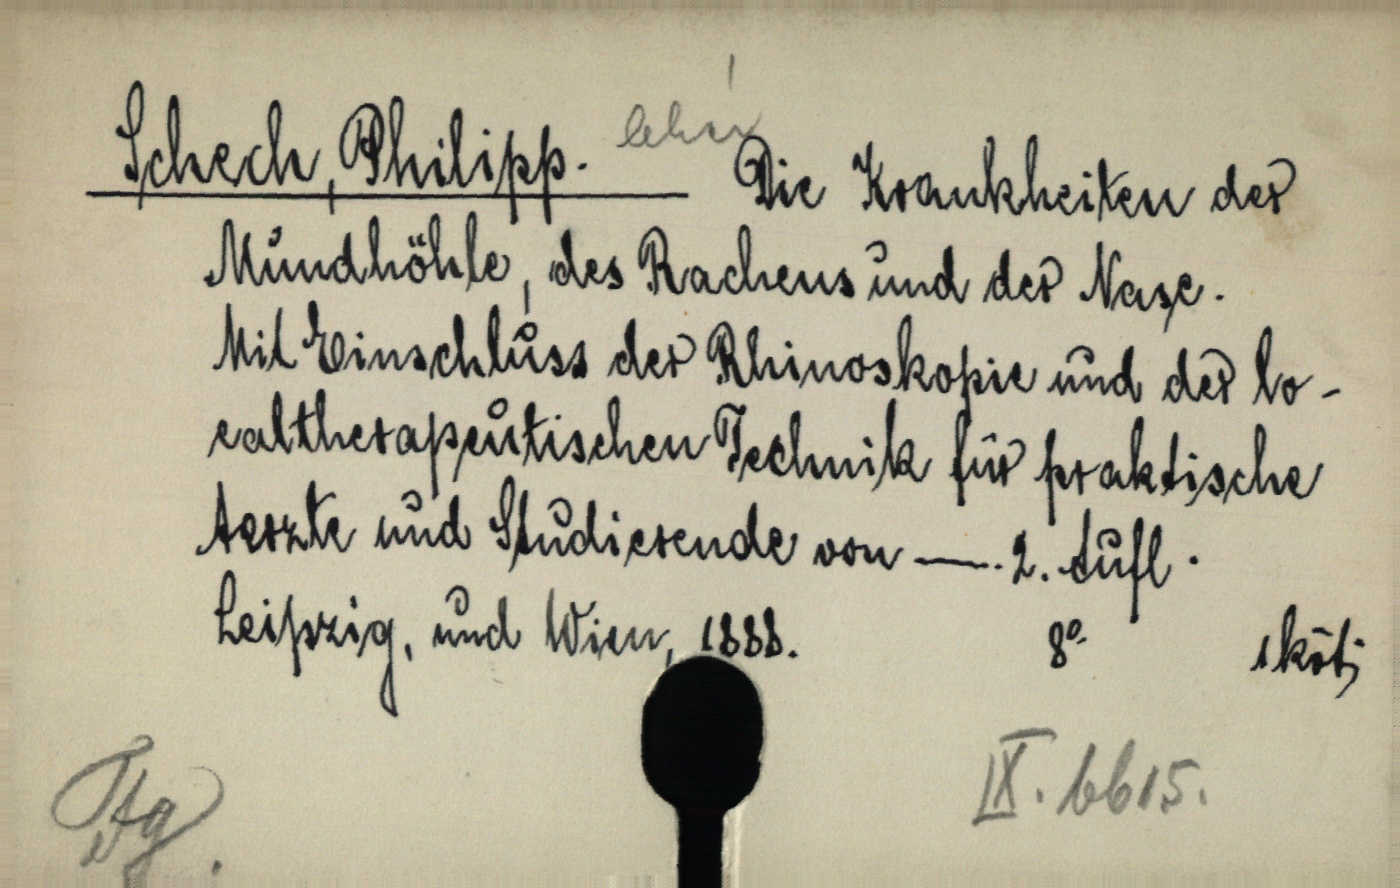 Schech, Philipp. Die Krankheiten der
Mundhöhle, des Rachens und der Nase.
Mit Einschluss der Rhinoskopie und der lo-
caltherapeutischen Technik für praktische
Aerzte und Studierende von —. 2. Aufl.
Leipzig, und Wien, 1888. 8° 1 köt;
IX. 6615.